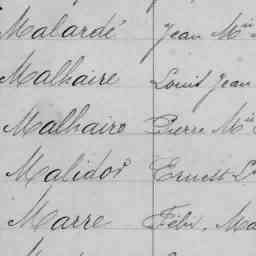 Malardé Jean Mie
Malhaire Louis Jean
Malhaire Pierre Mie
Malidor Ernest
Marre Félix, Ma